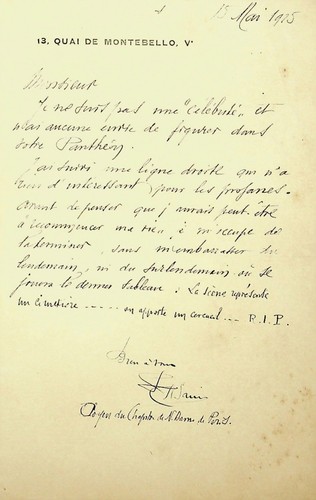 13 Mai 1925
13, QUAI DE MONTEBELLO, Ve
Monsieur
Je ne suis pas une "célébrité" et
n'ai aucune envie de figurer dans
votre Panthéon.
J'ai suivi une ligne droite qui n'a
rien d'intéressant pour les profanes.
Avant de penser que j'aurais peut-être
à recommencer ma vie, je m'occupe de
la terminer, sans m'embarrasser du
lendemain, ni du surlendemain où se
jouera le dernier tableau : la scène représente
un cimetière ..... on apporte un cercueil ... R.I.P.
Bien à vous
Doyen du Chapitre de N. Dame de Paris.